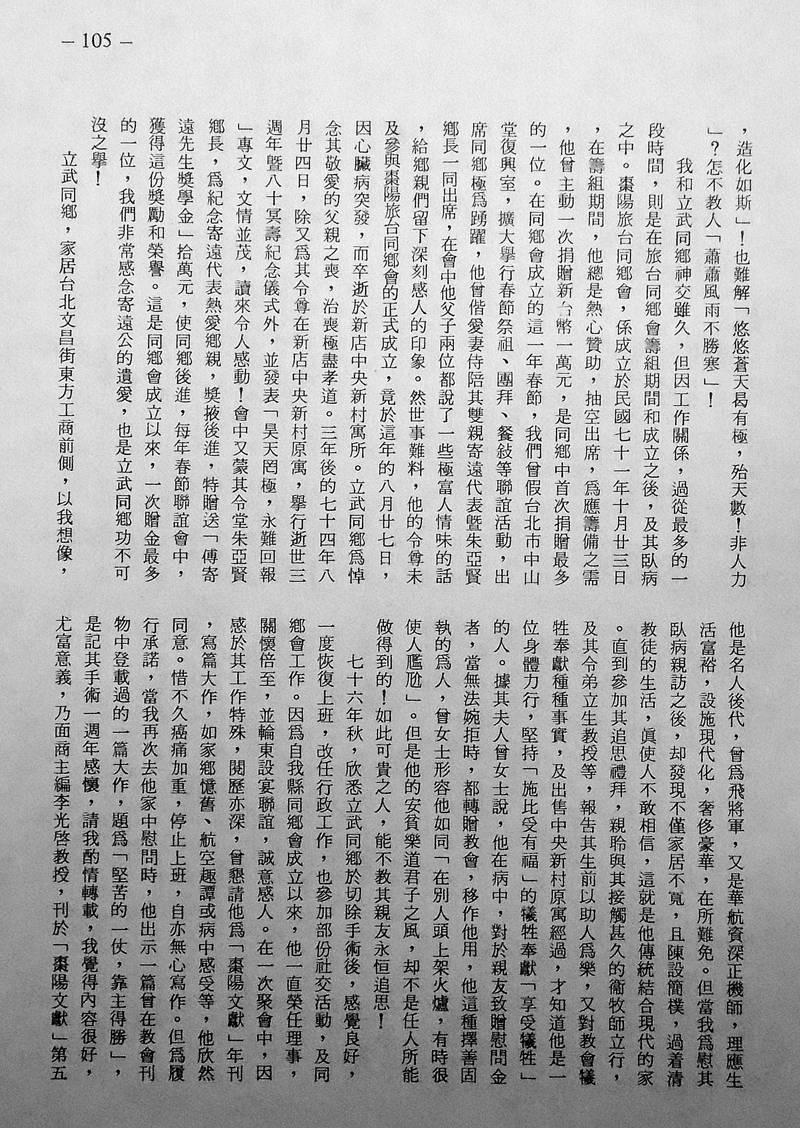 — 105 —
，造化如斯」！也難解「悠悠蒼天曷有極，殆天數！非人力
」？怎不教人「蕭蕭風雨不勝寒」！
我和立武同鄉神交雖久，但因工作關係，過從最多的一
段時間，則是在旅台同鄉會籌組期間和成立之後，及其臥病
之中。棗陽旅台同鄉會，係成立於民國七十一年十月廿三日
，在籌組期間，他總是熱心贊助，抽空出席，爲應籌備之需
，他曾主動一次捐贈新台幣一萬元，是同鄉中首次捐贈最多
的一位。在同鄉會成立的這一年春節，我們曾假台北市中山
堂復興室，擴大舉行春節祭祖、團拜、餐敍等聯誼活動，出
席同鄉極爲踴躍，他曾偕愛妻侍陪其雙親寄遠代表暨朱亞賢
鄉長一同出席，在會中他父子兩位都說了一些極富人情味的話
，給鄉親們留下深刻感人的印象。然世事難料，他的令尊未
及參與棗陽旅台同鄉會的正式成立，竟於這年的八月廿七日，
因心臟病突發，而卒逝於新店中央新村寓所。立武同鄉爲悼
念其敬愛的父親之喪，治喪極盡孝道。三年後的七十四年八
月廿四日，除又爲其令尊在新店中央新村原寓，舉行逝世三
週年暨八十冥壽紀念儀式外，並發表「昊天罔極，永難回報
」專文，文情並茂，讀來令人感動！會中又蒙其令堂朱亞賢
鄉長，爲紀念寄遠代表熱愛鄉親，獎掖後進，特贈送「傅寄
遠先生獎學金」拾萬元，使同鄉後進，每年春節聯誼會中，
獲得這份獎勵和榮譽。這是同鄉會成立以來，一次贈金最多
的一位，我們非常感念寄遠公的遺愛，也是立武同鄉功不可
沒之舉！
立武同鄉，家居台北文昌街東方工商前側，以我想像，
他是名人後代，曾爲飛將軍，又是華航資深正機師，理應生
活富裕，設施現代化，奢侈豪華，在所難免。但當我爲慰其
臥病親訪之後，却發現不僅家居不寬，且陳設簡樸，過着清
教徒的生活，眞使人不敢相信，這就是他傳統結合現代的家
。直到參加其追思禮拜，親聆與其接觸甚久的衞牧師立行，
及其令弟立生教授等，報告其生前以助人爲樂，又對教會犧
牲奉獻種種事實，及出售中央新村原寓經過，才知道他是一
位身體力行，堅持「施比受有福」的犧牲奉獻「享受犧牲」
的人。據其夫人曾女士說，他在病中，對於親友致贈慰問金
者，當無法婉拒時，都轉贈教會，移作他用，他這種擇善固
執的爲人，曾女士形容他如同「在別人頭上架火爐，有時很
使人尷尬」。但是他的安貧樂道君子之風，却不是任人所能
做得到的！如此可貴之人，能不教其親友永恒追思！
七十六年秋，欣悉立武同鄉於切除手術後，感覺良好，
一度恢復上班，改任行政工作，也參加部份社交活動，及同
鄉會工作。因爲自我縣同鄉會成立以來，他一直榮任理事，
關懷倍至，並輪東設宴聯誼，誠意感人。在一次聚會中，因
感於其工作特殊，閱歷亦深，曾懇請他爲「棗陽文獻」年刊
，寫篇大作，如家鄉憶舊、航空趣譚或病中感受等，他欣然
同意。惜不久癌痛加重，停止上班，自亦無心寫作。但爲履
行承諾，當我再次去他家中慰問時，他出示一篇曾在教會刊
物中登載過的一篇大作，題爲「堅苦的一仗，靠主得勝」，
是記其手術一週年感懷，請我酌情轉載，我覺得內容很好，
尤富意義，乃面商主編李光啓教授，刊於「棗陽文獻」第五